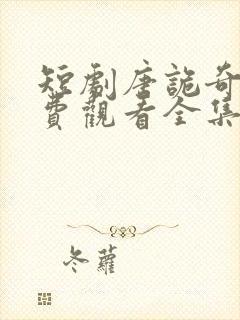 短劇唐詭奇
費觀看全集
冬蘿